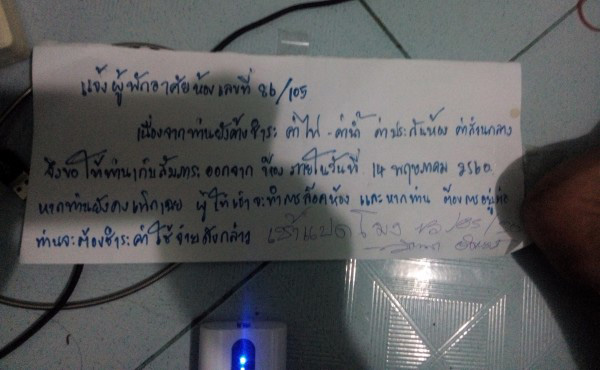 แจ้งผู้พักอาศัยห้องเลขที่ 26/105
เนื่องจากท่านยังค้างชำระ ค่าไฟ - ค่าน้ำ ค่าประกันห้อง ค่าส่วนกลาง
จึงขอให้ท่านเก็บสัมภาระออกจาก ห้อง ภายในวันที่ 14 พฤษภาคม 2560
หากท่านยังคงเพิกเฉย ผู้ให้เช่าจะทำการล็อคห้อง และหากท่าน ต้องการอยู่ต่อ
ท่านจะต้องชำระค่าใช้จ่ายดังกล่าว เช้าแปดโมง